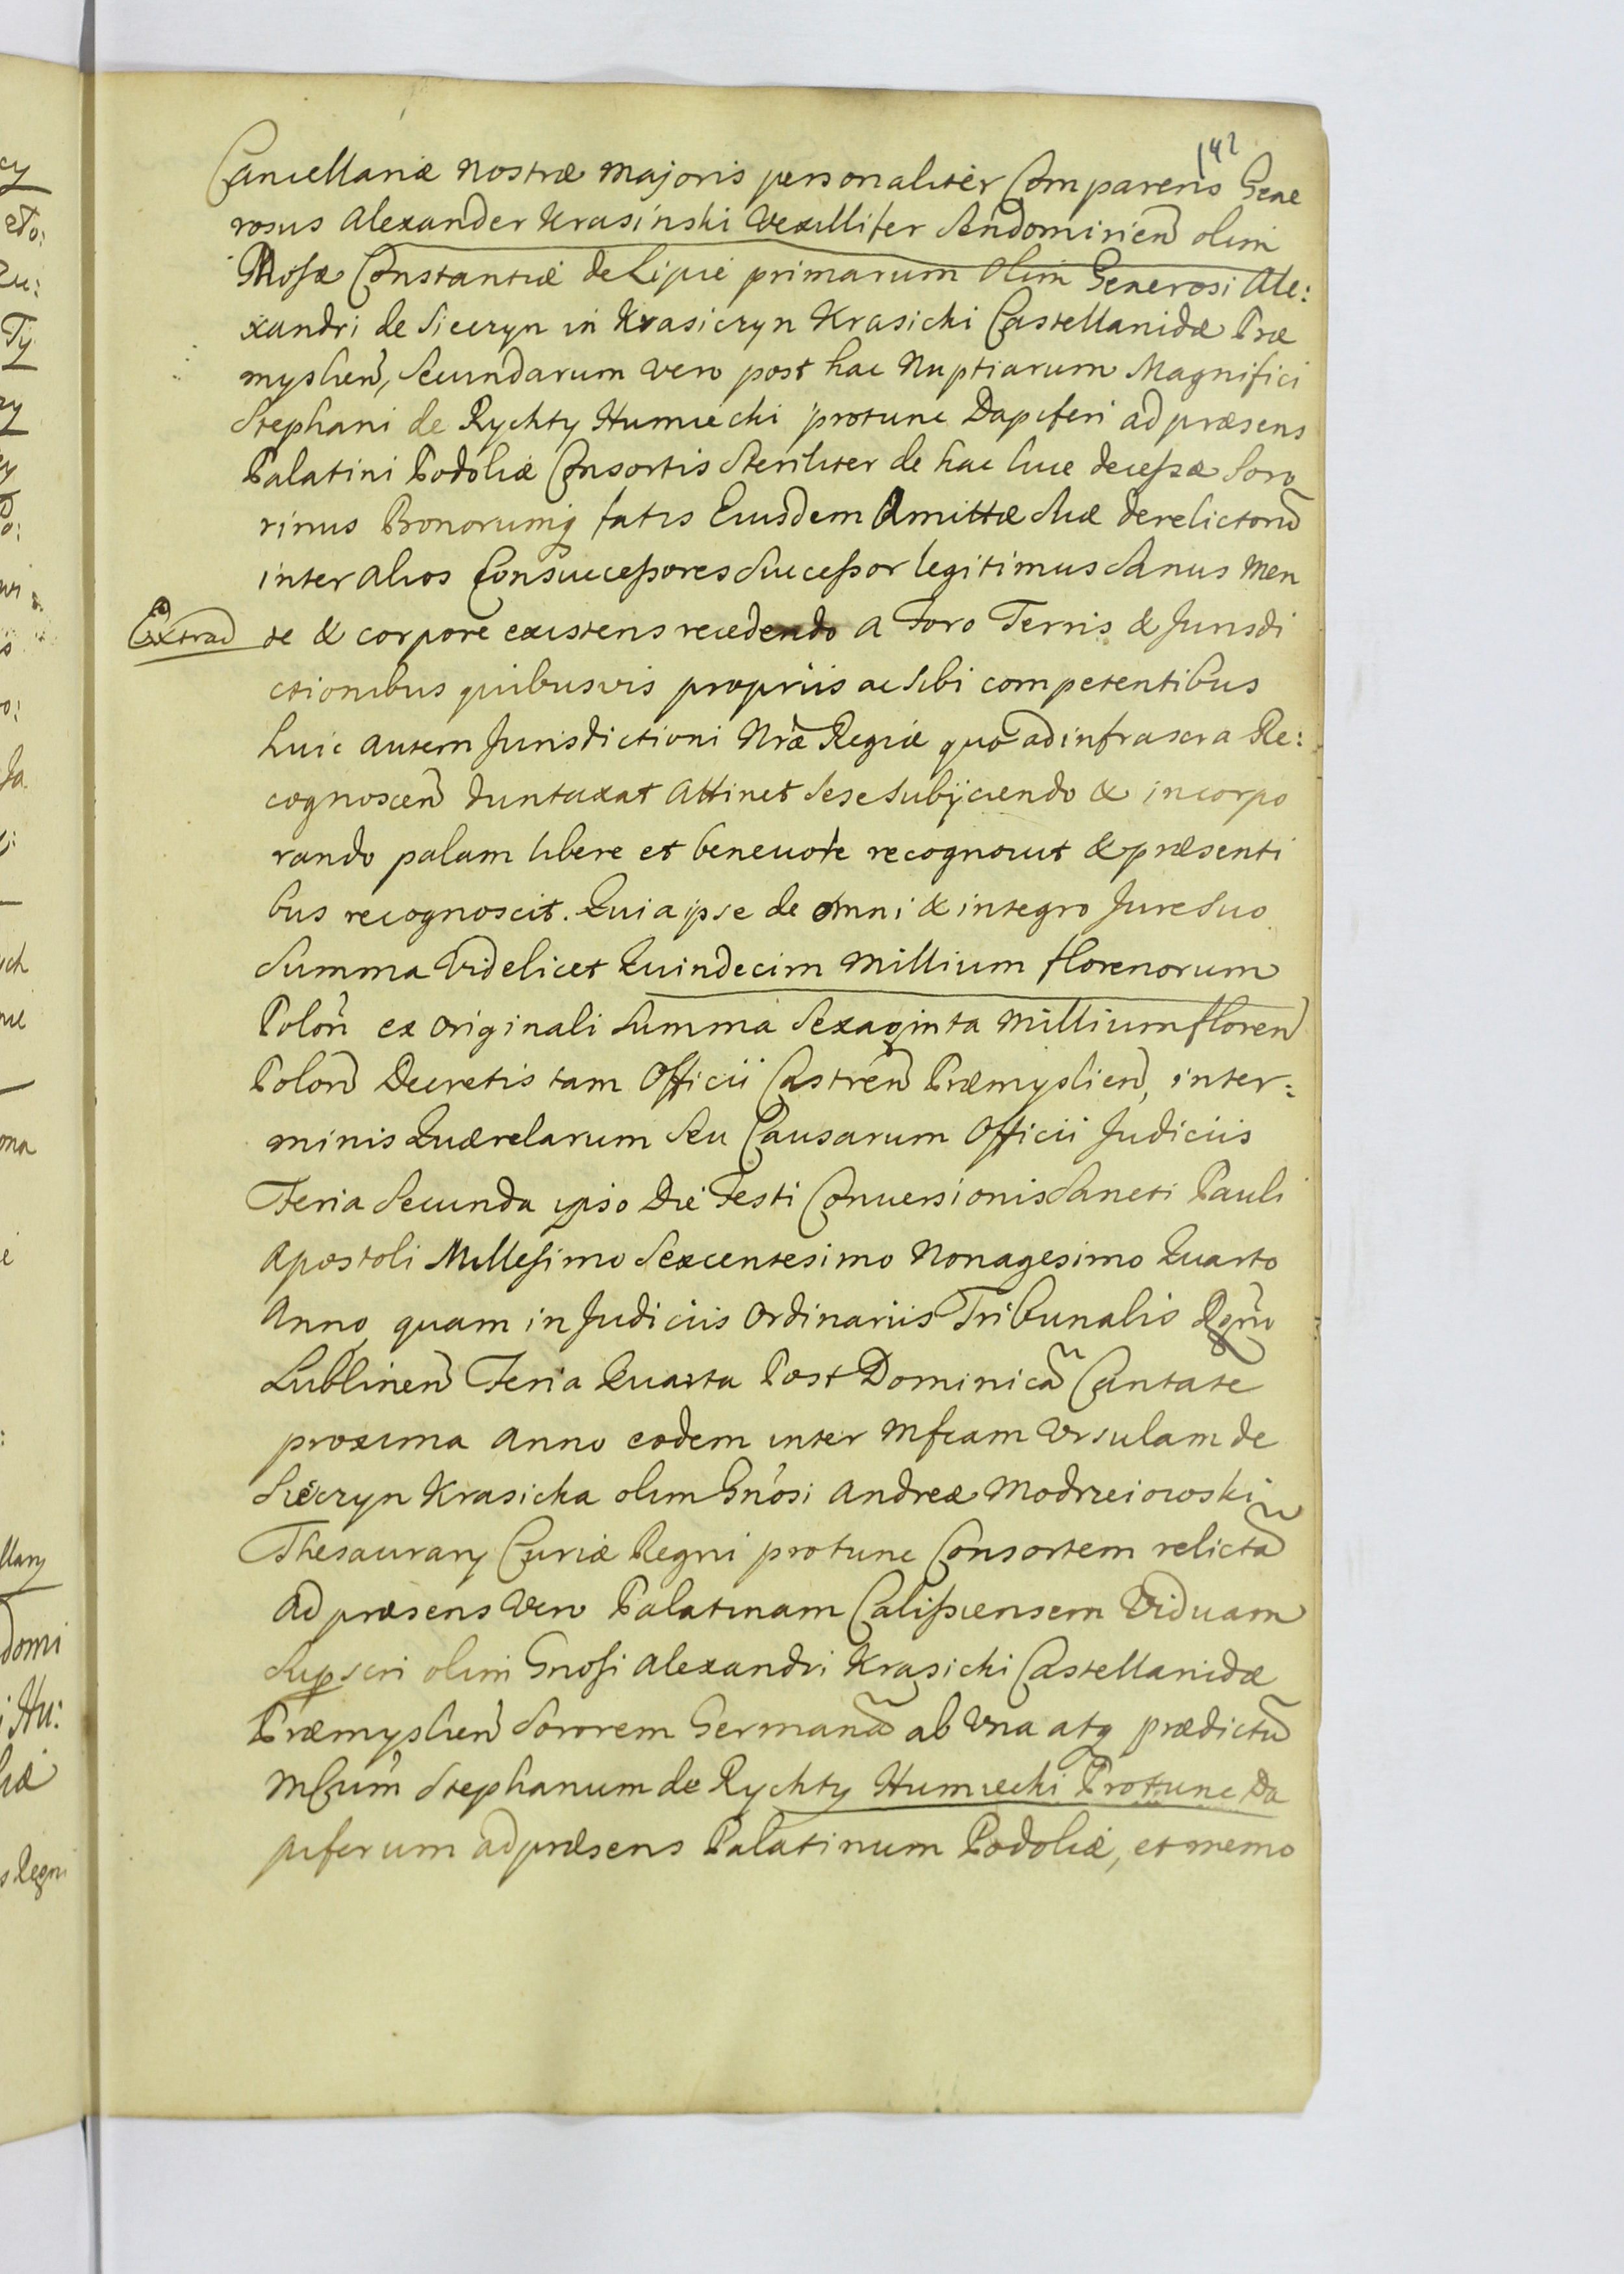 142
Cancellariæ nostræ Majoris personaliter Comparens Gene
rosus Alexander Krasinski Vexillifer Sendomirien olim
Gnosæ Constantiæ de Lipie primarum Olim Generosi Ale:
xandri de Siecryn in Krasiczyn Krasicki Castellanidæ Præ
myslien, Secundarum vero post hac Nuptiarum Magnifici
Stephani de Rychty Humiecki protunc Dapiferi ad præsens
Palatini Podoliæ Consortis Steriliter de hac luce decessæ Soro
rinus Bonorumq fatis Eiusdem Amittæ Suæ derelictorũ
inter alios Consuccessores Successor legitimus Sanus Men
Extrad
te & corpore existens recedendo a Foro Terris & Jurisdi
ctionibus quibusvis propriis ac Sibi competentibus
huic autem Jurisdictioni Nræ Regiæ quo ad infrascra Re:
cognoscen duntaxat Attinet Sese Subijciendo & incorpo
rando palam libere et benevole recognovit & præsenti
bus recognoscit. Quia ipse de omni & integro Jure Suo
Summa Videlicet Quindecim Millium florenorum
Polon ex Originali Summa Sexaginta Millium floren
Polon Decretis tam Officii Castren Præmyslien, inter:
minis Quærelarum Seu Causarum Officii Judiciis
Feria Secunda ipso Die Festi Conversionis Sancti Pauli
Apostoli Millesimo Sexcentesimo Nonagesimo Quarto
Anno, quam in Judiciis Ordinariis Tribunalis Regni
Lublinen Feria Quarta Post Dominicã Cantate
proxima Anno eodem inter Mficam Ursulam de
Siecryn Krasicka olim Gnosi Andreæ Modrzeiowski
Thesaurary Curiæ Regni protunc Consortem relictã
ad præsens Vero Palatinam Calissiensem Viduam
Supscri olim Gnosi Alexandri Krasicki Castellanidæ
Præmyslien Sororem Germanã ab Una atq prædictũ
Mficum Stephanum de Rychty Humiecki Protunc Da
piferum ad præsens Palatinum Podoliæ, et memo